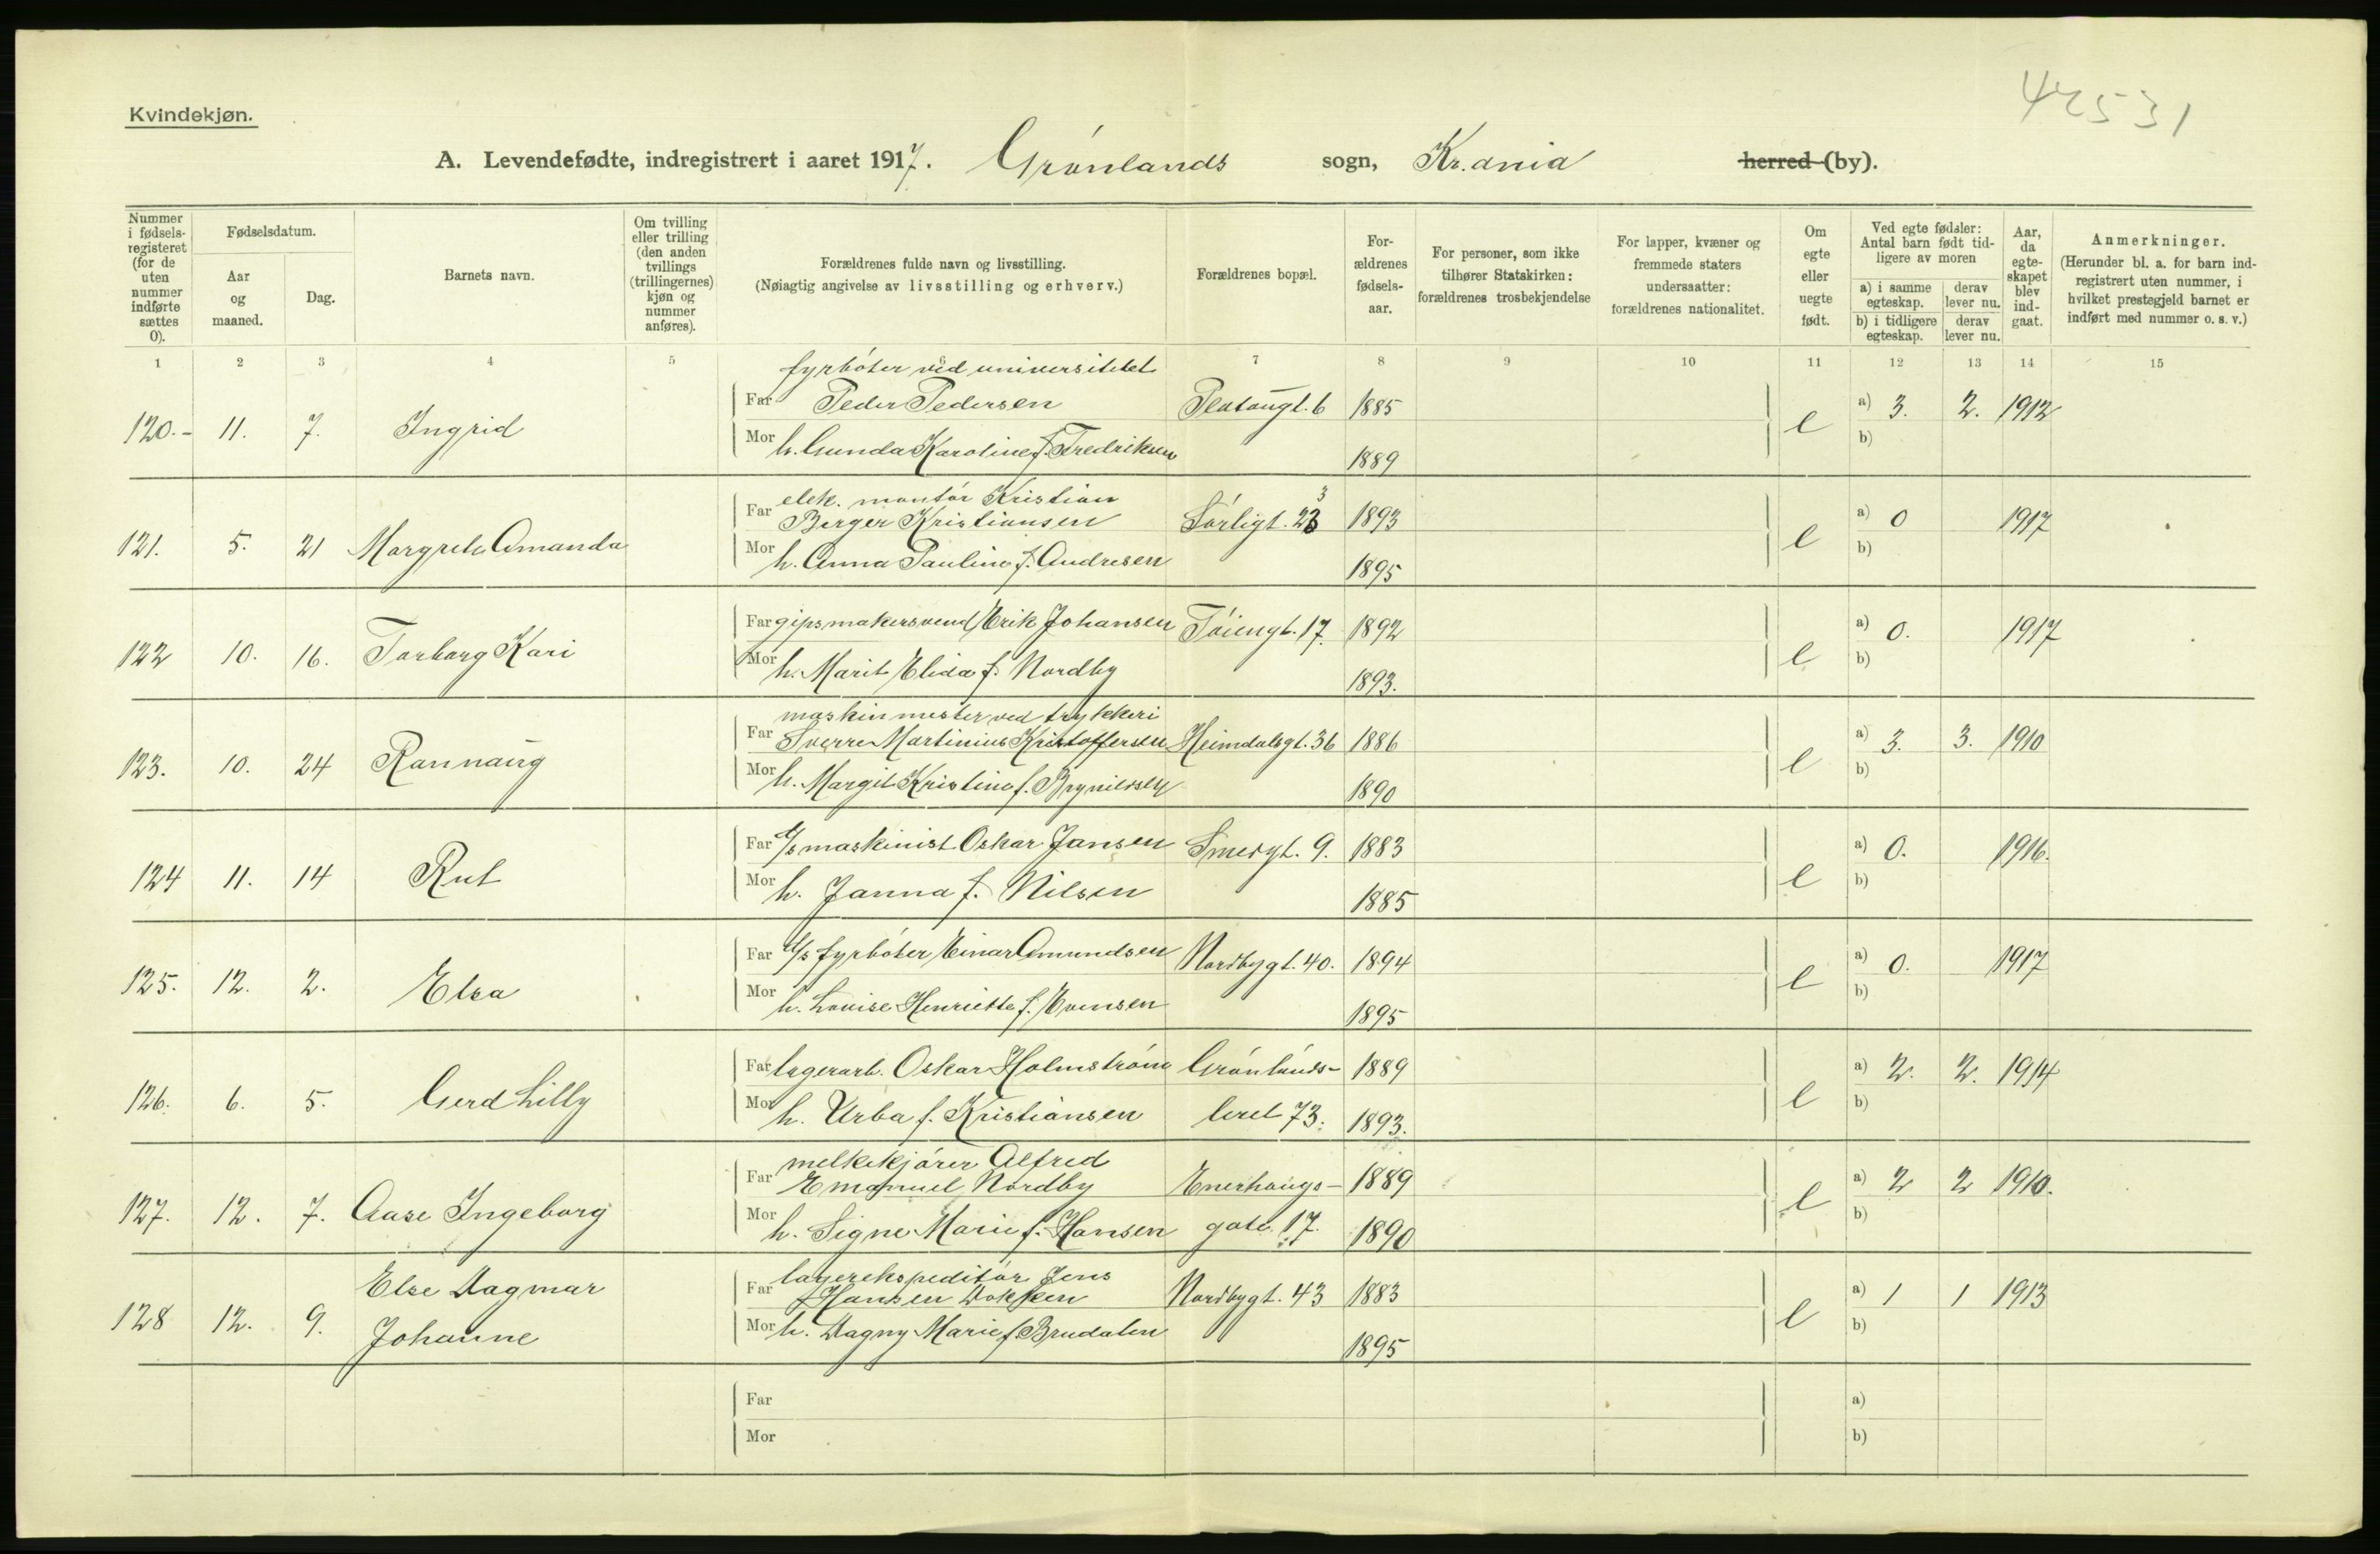 42531
Kvindekjøn.
A. Levendefødte, indregistrert i aaret 1917. Grønlands sogn, Kr.ania herred (by).
Nummer i fødsels-registeret (for de uten nummer indførte sættes 0).
Fødselsdatum.
Aar og maaned.
Dag.
Barnets navn.
Om tvilling eller trilling (den anden tvillings (trillingernes) kjøn og nummer anføres).
Forældrenes fulde navn og livsstilling.
(Nøiagtig angivelse av livsstilling og erhverv.)
Forældrenes bopæl.
For-ældrenes fødsels-aar.
For personer, som ikke tilhører Statskirken: forældrenes trosbekjendelse
For lapper, kvæner og fremmede staters undersaatter: forældrenes nationalitet.
Om egte eller uegte født.
Ved egte fødsler: Antal barn født tid-ligere av moren
a) i samme egteskap. derav lever nu.
b) i tidligere egteskap. derav lever nu.
Aar, da egte-skapet blev ind-gaat.
Anmerkninger.
(Herunder bl. a. for barn ind-registrert uten nummer, i hvilket prestegjeld barnet er indført med nummer o. s. v.)
1 2 3 4 5 6 7 8 9 10 11 12 13 14 15
fyrbóter ved universitetet
Far Peder Pedersen Platougt. 6 1885 a) 3. 2. 1912
120.- 11. 7. Ingrid e
Mor h. Gunda Karoline f. Fredriksen 1889 b)
elek. montór Kristian
Far Birger Kristiansen Sórligt. 23 3 1893 a) 0 1917
121. 5. 21 Margrete Amanda e
Mor h. Anna Pauline f. Andresen 1895 b)
Far gipsmakersvend Erik Johansen Tóiengt. 17. 1892 a) 0. 1917
122 10. 16. Torborg Kari e
Mor h. Marit Elida f. Nordby 1893. b)
maskinmester ved trykkeri
Far Sverre Martinius Kristoffersen Heimdalsgt. 36 1886 a) 3. 3. 1910
123. 10. 24 Rannaug e
Mor h. Margit Kristine f. Brynildsen 1890 b)
Far d/s maskinist Oskar Jansen Smedgt. 9. 1883 a) 0. 1916.
124 11. 14 Rut e
Mor h. Janna f. Nilsen 1885 b)
Far d/s fyrbóter Einar Amundsen Nordbygt. 40. 1894 a) 0. 1917
125. 12. 2. Elsa e
Mor h. Louise Henriette f. Evensen 1895 b)
Far lagerarb. Oskar Holmstróm Grónlands- 1889 a) 2. 2. 1914
126. 6. 5. Gerd Lilly e
Mor h. Urba f. Kristiansen leret 73. 1893. b)
melkekjórer Alfred
Far Emanuel Nordby Enerhaugs- 1889 a) 2 2 1910.
127. 12. 7. Aase Ingeborg e
Mor h. Signe Marie f. Hansen gate 17. 1890 b)
Else Dagmar lagerekspeditór Jens
Far Hansen Dokken Nordbygt. 43 1883 a) 1 1 1913
128 12. 9. Johanne e
Mor h. Dagny Marie f. Brudalen 1895 b)
Far a)
Mor b)